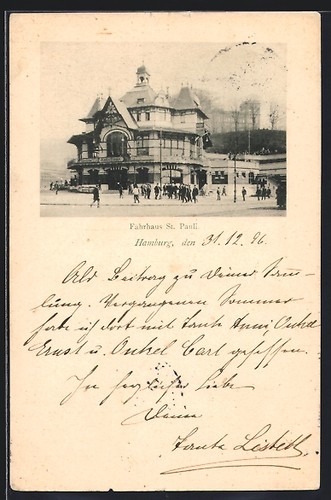 Fährhaus St. Pauli.
Hamburg, den 31.12.96.
Als Beitrag zu Deiner Samm-
lung. Vergangenen Sommer
habe ich dort mit Tante Anni Onkel
Ernst u. Onkel Carl gesessen.
In herzlicher Liebe
Deine
Tante Lisbeth.